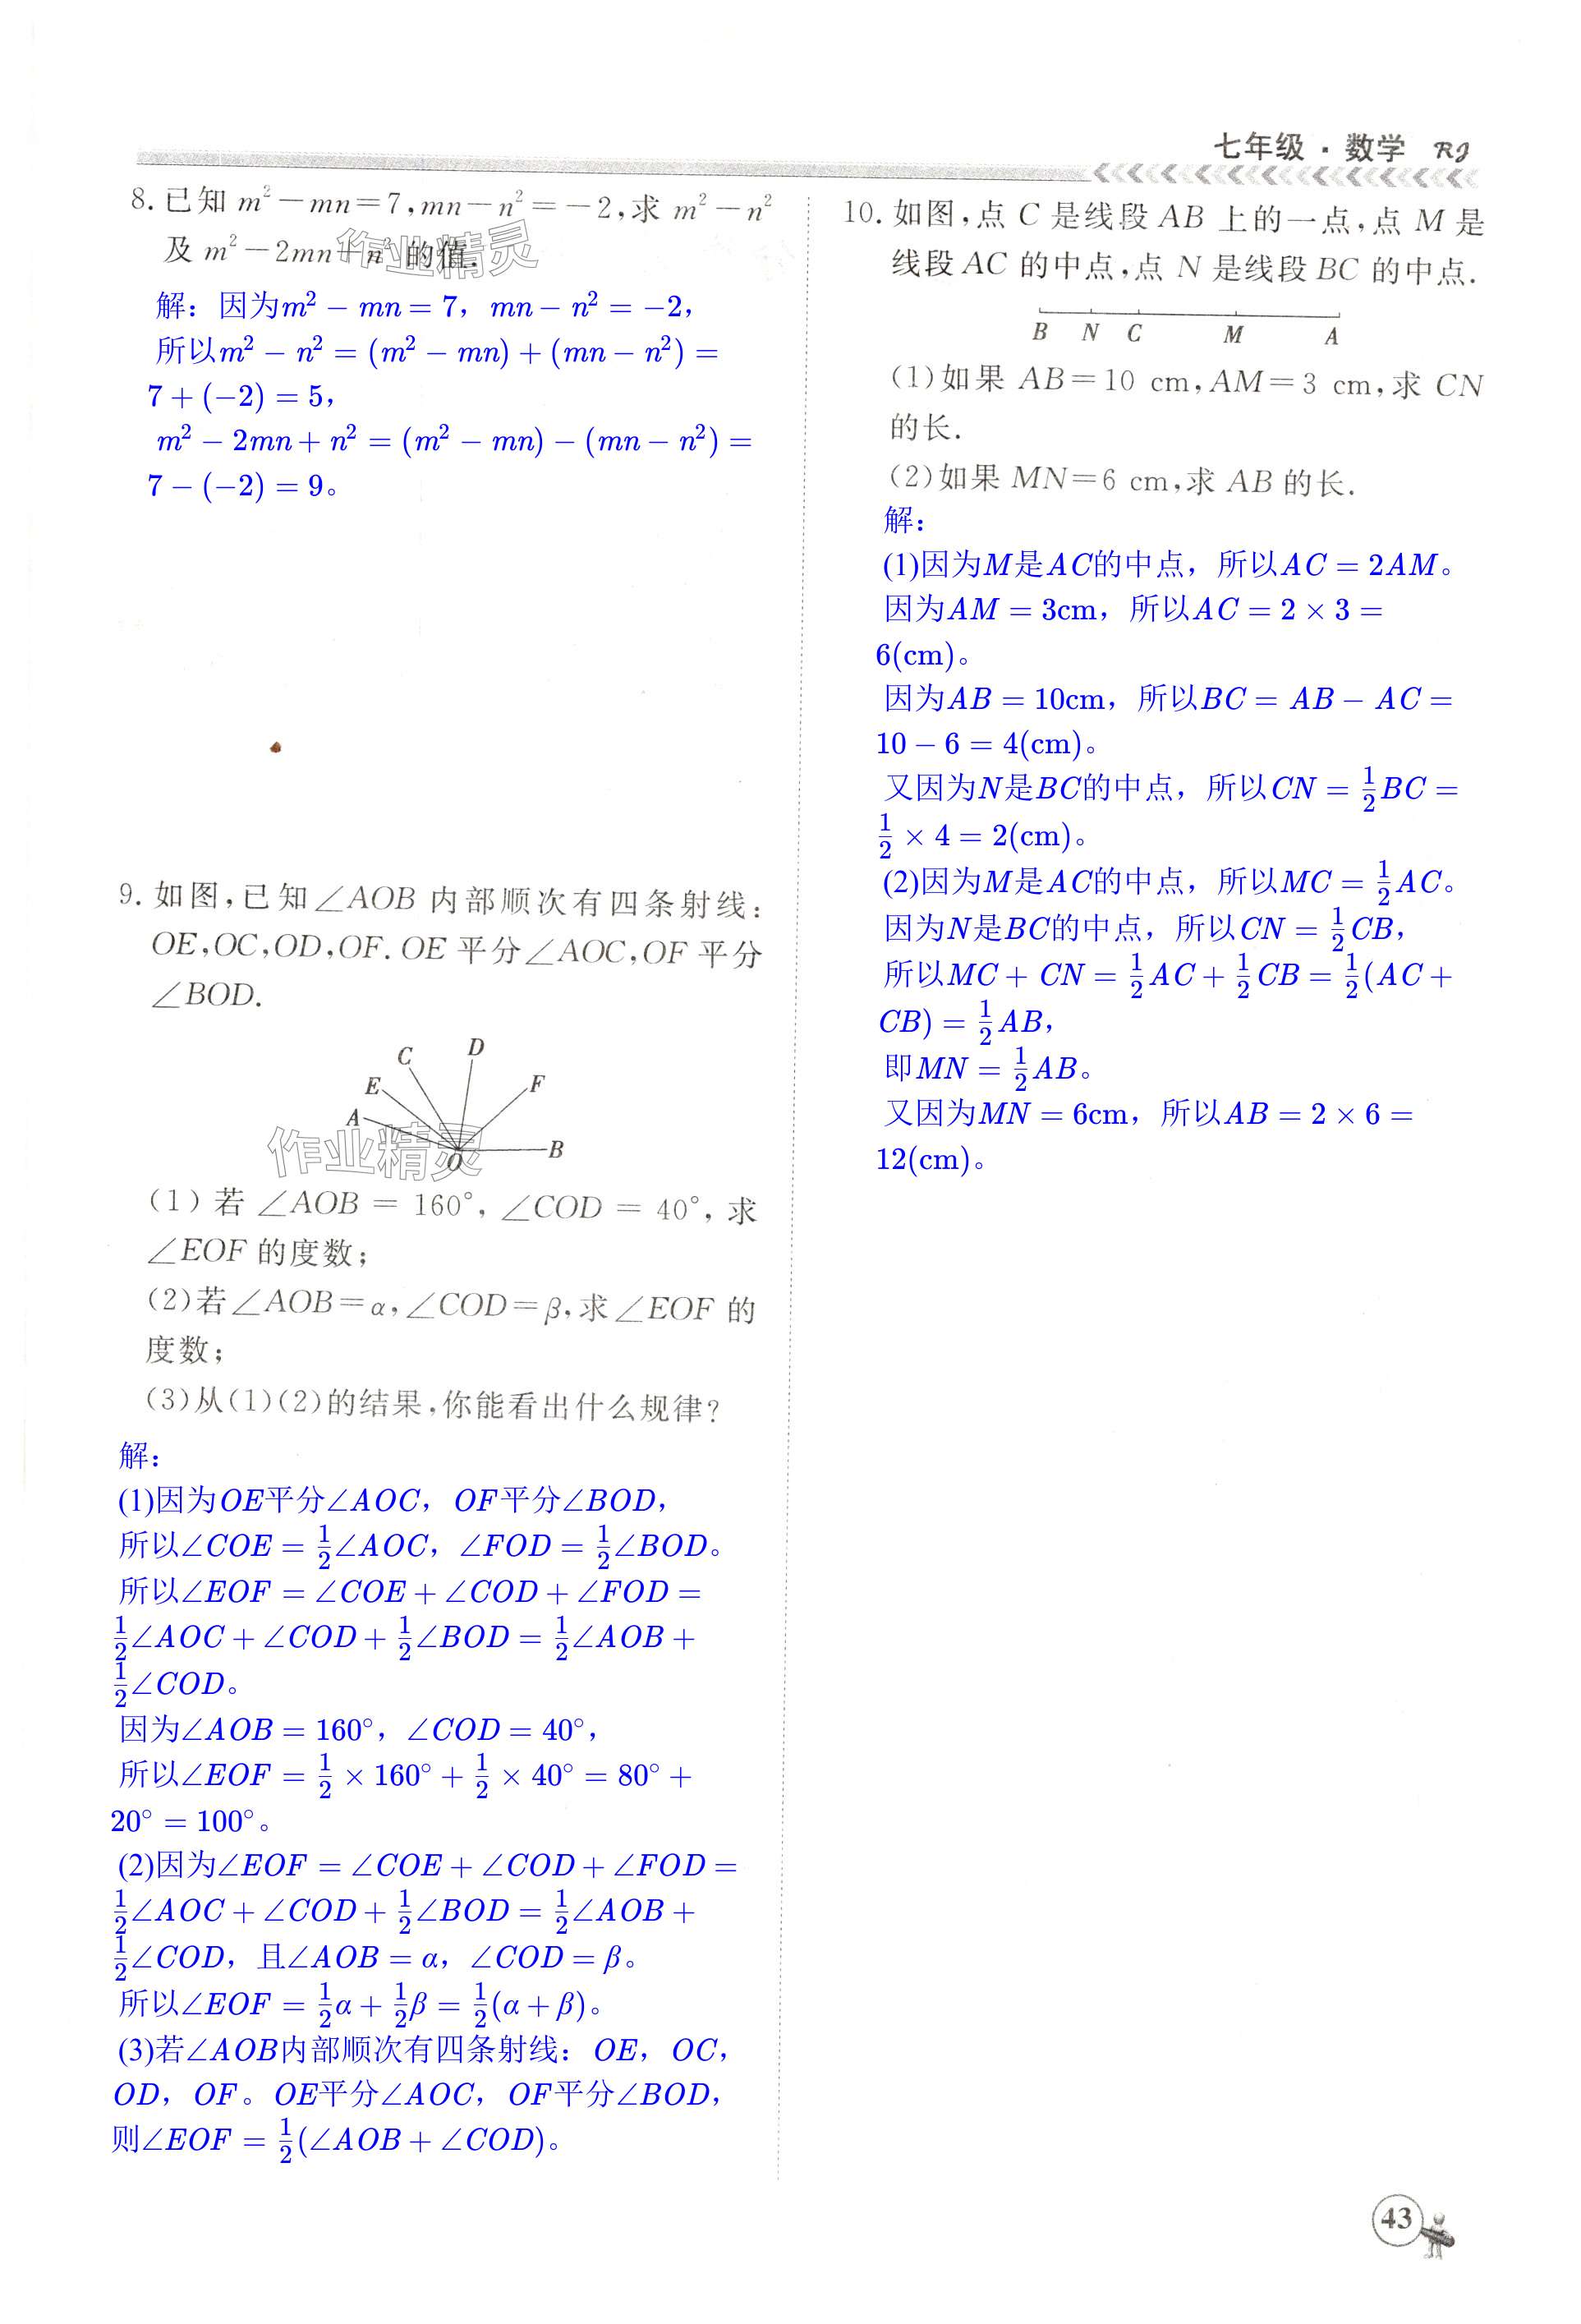 七年级·数学 RJ
8. 已知 m²－mn＝7,mn－n²＝－2,求 m²－n²
及 m²－2mn＋n² 的值.
作业精灵
解：因为m² − mn = 7，mn − n² = −2，
所以m² − n² = (m² − mn) + (mn − n²) =
7 + (−2) = 5，
m² − 2mn + n² = (m² − mn) − (mn − n²) =
7 − (−2) = 9。
9. 如图,已知∠AOB 内部顺次有四条射线:
OE,OC,OD,OF. OE 平分∠AOC,OF 平分
∠BOD.
C D
E F
A
O B
作业精灵
(1) 若 ∠AOB ＝ 160°, ∠COD ＝ 40°, 求
∠EOF 的度数;
(2)若∠AOB＝α,∠COD＝β,求∠EOF 的
度数;
(3)从(1)(2)的结果,你能看出什么规律?
解：
(1)因为OE平分∠AOC，OF平分∠BOD，
所以∠COE = 1/2∠AOC，∠FOD = 1/2∠BOD。
所以∠EOF = ∠COE + ∠COD + ∠FOD =
1/2∠AOC + ∠COD + 1/2∠BOD = 1/2∠AOB +
1/2∠COD。
因为∠AOB = 160°，∠COD = 40°，
所以∠EOF = 1/2 × 160° + 1/2 × 40° = 80° +
20° = 100°。
(2)因为∠EOF = ∠COE + ∠COD + ∠FOD =
1/2∠AOC + ∠COD + 1/2∠BOD = 1/2∠AOB +
1/2∠COD，且∠AOB = α，∠COD = β。
所以∠EOF = 1/2α + 1/2β = 1/2(α + β)。
(3)若∠AOB内部顺次有四条射线：OE，OC，
OD，OF。OE平分∠AOC，OF平分∠BOD，
则∠EOF = 1/2(∠AOB + ∠COD)。
10. 如图,点 C 是线段 AB 上的一点,点 M 是
线段 AC 的中点,点 N 是线段 BC 的中点.
B N C M A
(1)如果 AB＝10 cm,AM＝3 cm,求 CN
的长.
(2)如果 MN＝6 cm,求 AB 的长.
解：
(1)因为M是AC的中点，所以AC = 2AM。
因为AM = 3cm，所以AC = 2 × 3 =
6(cm)。
因为AB = 10cm，所以BC = AB − AC =
10 − 6 = 4(cm)。
又因为N是BC的中点，所以CN = 1/2BC =
1/2 × 4 = 2(cm)。
(2)因为M是AC的中点，所以MC = 1/2AC。
因为N是BC的中点，所以CN = 1/2CB，
所以MC + CN = 1/2AC + 1/2CB = 1/2(AC +
CB) = 1/2AB，
即MN = 1/2AB。
又因为MN = 6cm，所以AB = 2 × 6 =
12(cm)。
43